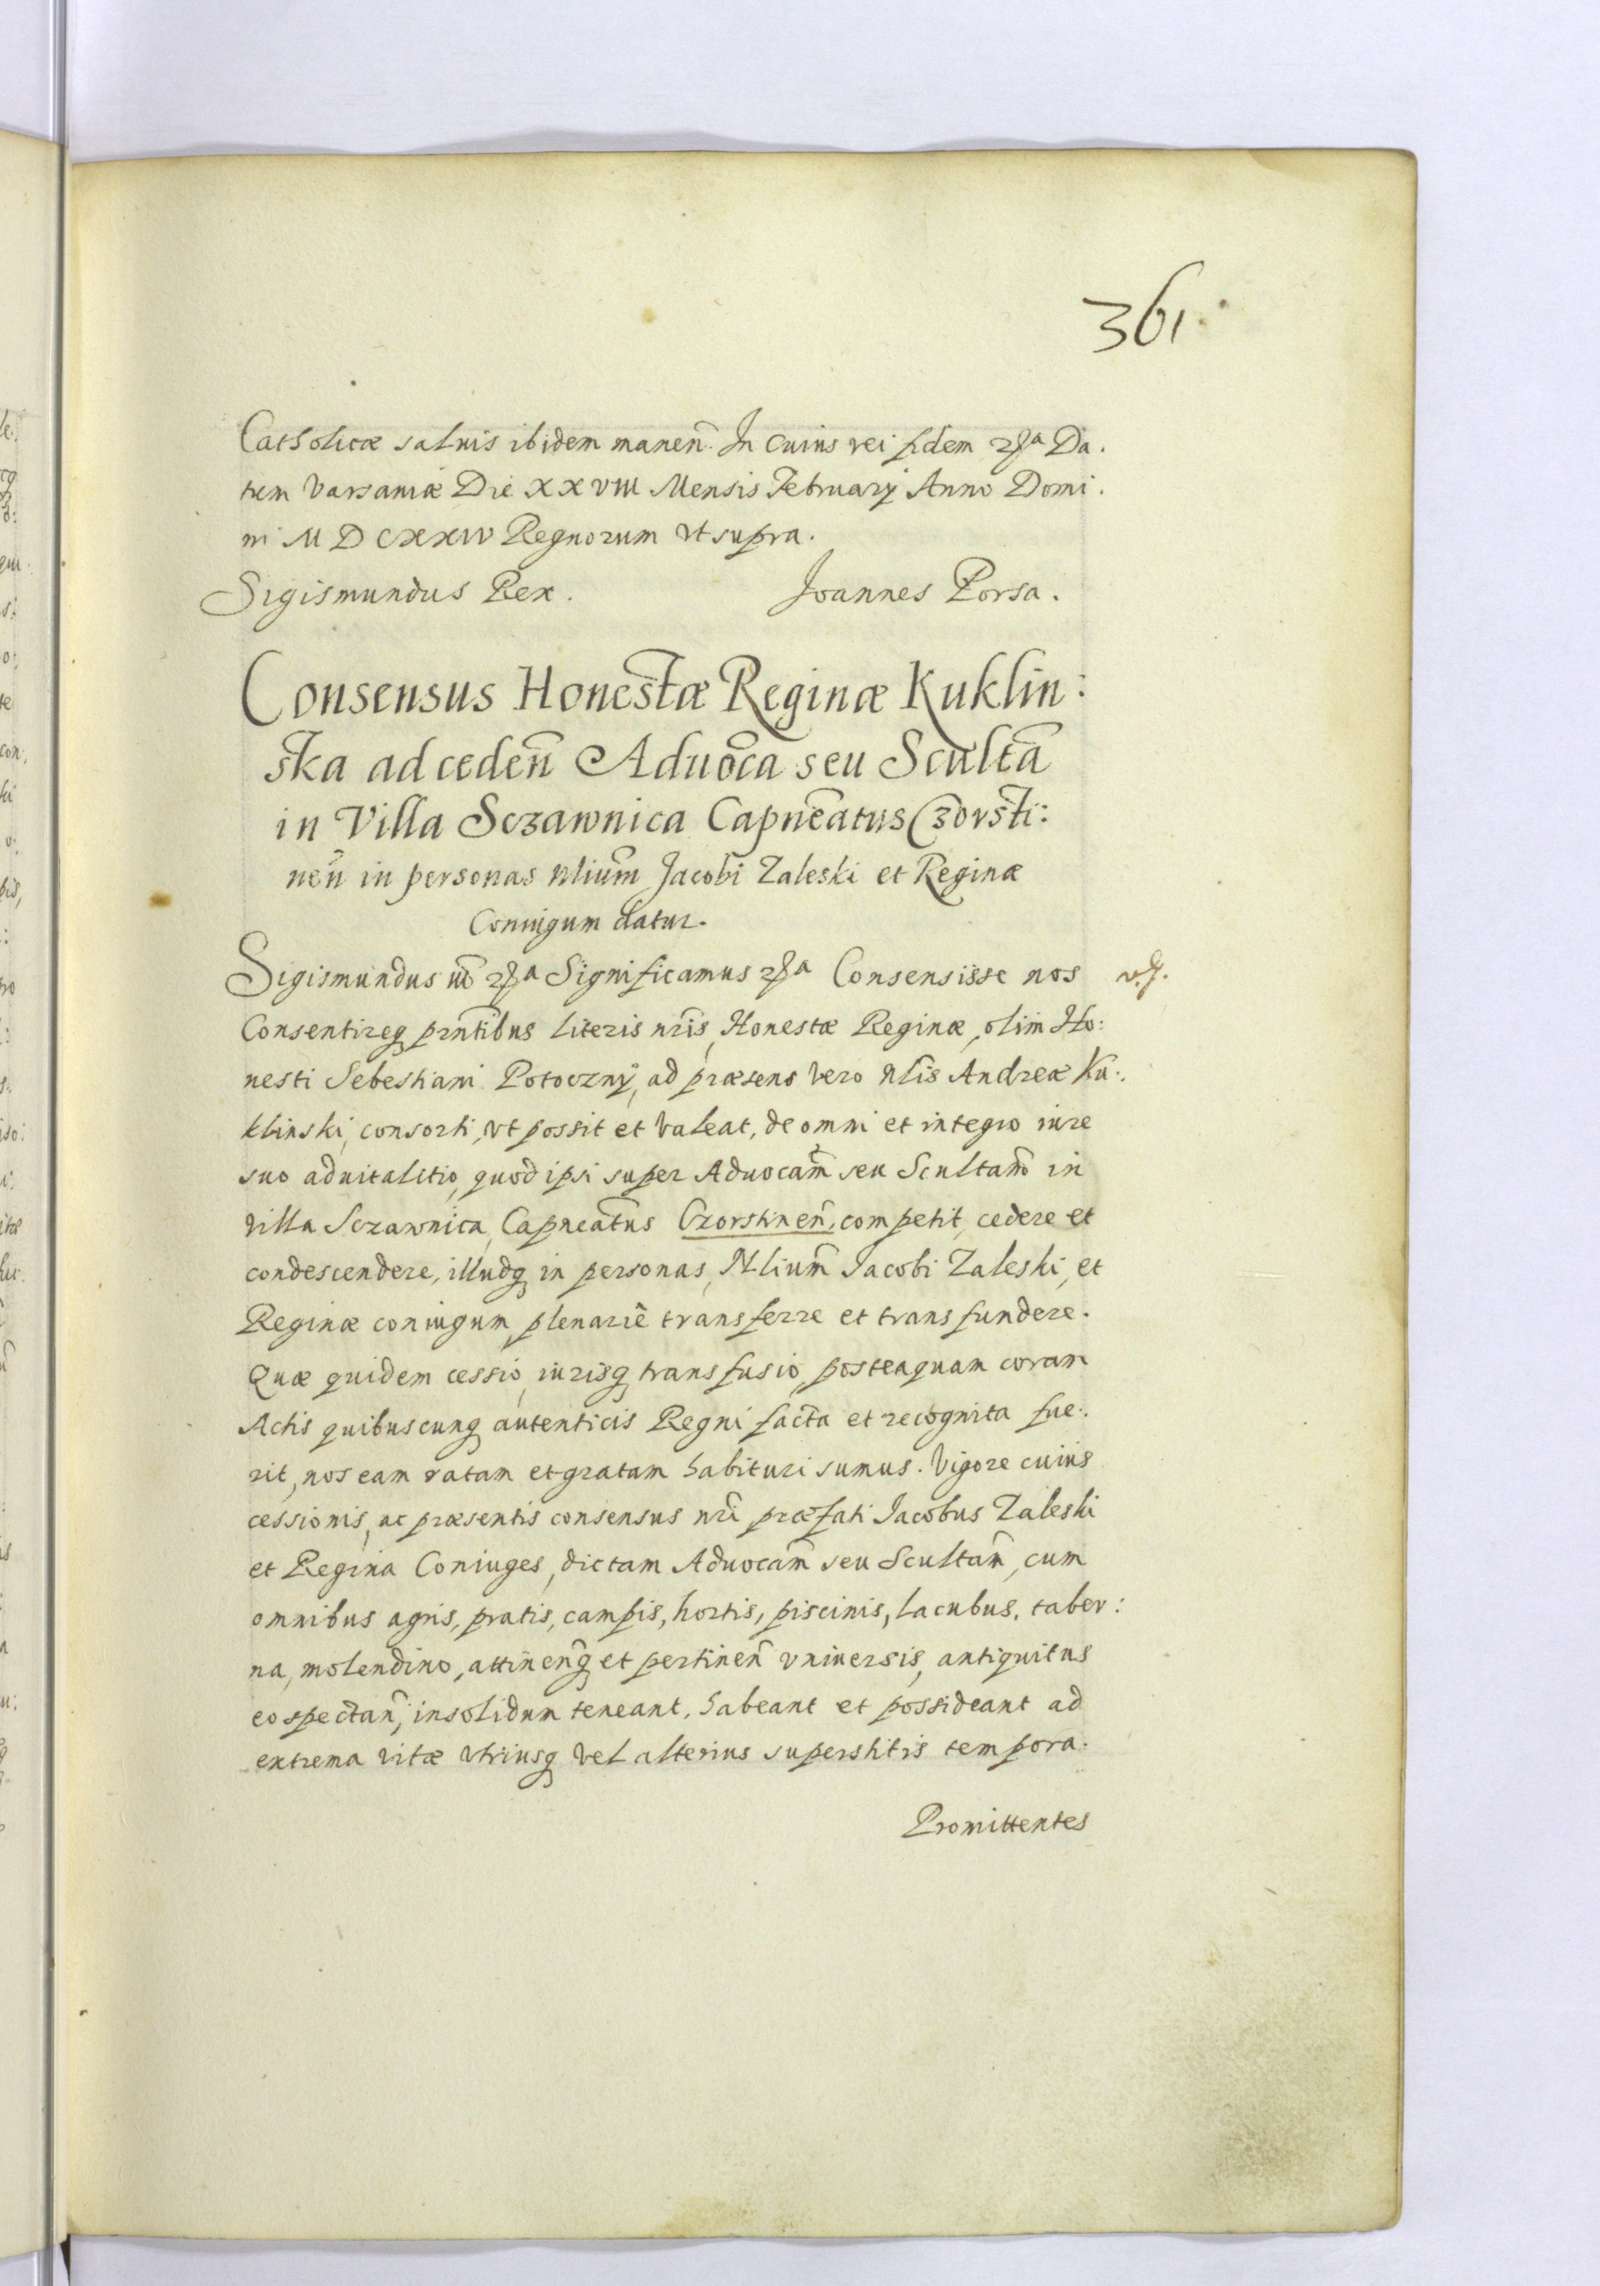 361.
Catholicæ saluis ibidem manen̄. In cuius rei fidem etc̃a Da.
tum Varsauiæ Die XXVIII Mensis February Anno Domi.
ni MDCXXIV Regnorum vt supra.
Sigismundus Rex. Joannes Porsa.
Consensus Honestæ Reginæ Kuklin:
ska ad ceden̄ Aduoc̃a seu Scultã
in Villa Sczawnica Capneãtus Czorsti:
nen̄ in personas Nliũm Jacobi Zaleski et Reginæ
Coniugum datur.
Sigismundus etc̃a Significamus etc̃a Consensisse nos
Consentireq prñtibus literis nr̃is, Honestæ Reginæ, olim Ho:
nesti Sebestiani Potoczny, ad præsens vero Nlis Andreæ Ku.
klinski, consorti, vt possit et valeat, de omni et integro iure
suo aduitalitio, quod ipsi super Aduocam̃ seu Scultam̃ in
villa Sczawnica, Capneãtus Czorstinen̄, competit, cedere et
condescendere, illudq in personas, Nlium̃ Jacobi Zaleski, et
Reginæ coniugum plenariè transferre et transfundere.
Quæ quidem cessio, iurisq transfusio, posteaquam coram
Actis quibuscunq autenticis Regni facta et recognita fue.
rit, nos eam ratam et gratam habituri sumus. Vigore cuius
cessionis, ac præsentis consensus nr̃i præfati Jacobus Zaleski
et Regina Coniuges, dictam Aduocam̃ seu Scultam̃, cum
omnibus agris, pratis, campis, hortis, piscinis, lacubus, taber:
na, molendino, attinen̄q et pertinen̄ vniuersis, antiquitus
eo spectan̄, insolidum teneant, habeant et possideant ad
extrema vitæ vtriusq vel alterius superstitis tempora.
Promittentes